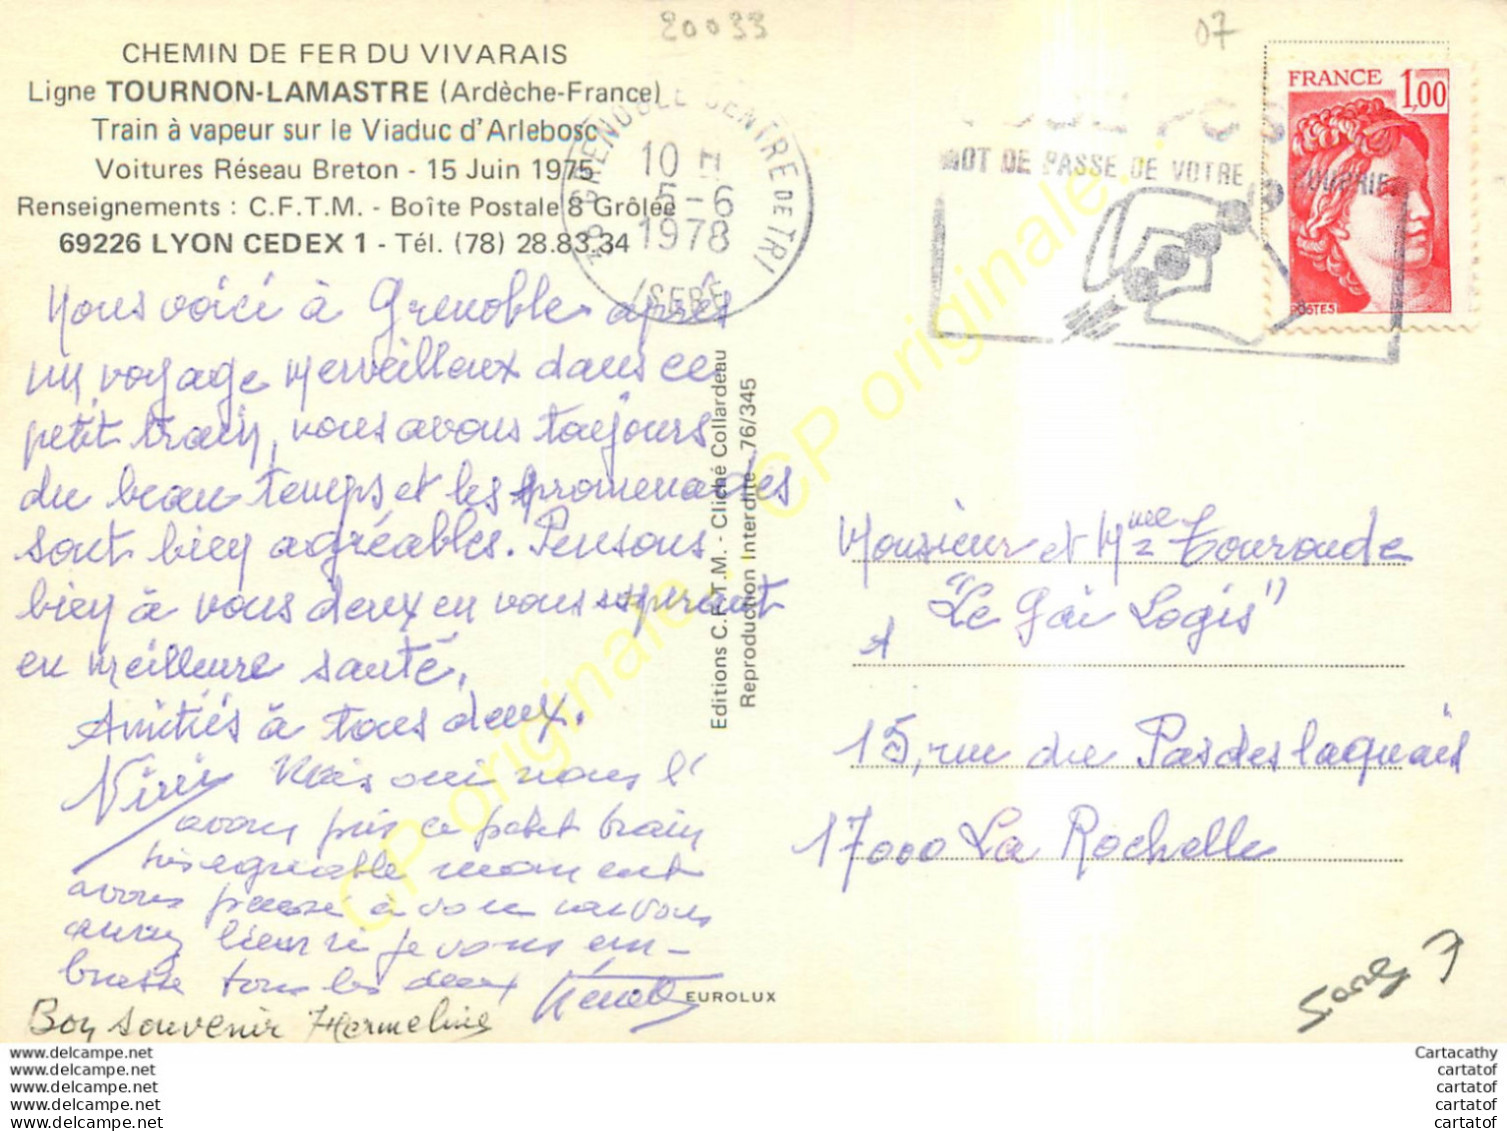 20033
07
CHEMIN DE FER DU VIVARAIS
Ligne TOURNON-LAMASTRE (Ardèche-France)
Train à vapeur sur le Viaduc d'Arlebosc
Voitures Réseau Breton - 15 Juin 1975
Renseignements : C.F.T.M. - Boîte Postale 8 Grôlée
69226 LYON CEDEX 1 - Tél. (78) 28.83.34
38 GRENOBLE CENTRE DE TRI
10 H
5-6
1978
ISERE
CODE POS
MOT DE PASSE DE VOTRE COURRIER
FRANCE 1,00
POSTES
Nous voici à Grenoble après
un voyage merveilleux dans ce
petit train, nous avons toujours
du beau temps et les promenades
sont bien agréables. Pensons
bien à vous deux en vous espérant
en meilleure santé.
Amitiés à tous deux.
Vivi Mais oui nous l'
avons pris ce petit train
très agréable moment
avons pensé à vous
je vous em-
brasse tous les deux
Bon souvenir Hermeline
Editions C.F.T.M. - Cliché Collardeau
Reproduction Interdite - 76/345
EUROLUX
Monsieur et Mme Touroude
"Le Gai Logis"
A
15, rue du Pas des laquais
17000 La Rochelle
7
CP originale. CP originale. CP originale.
www.delcampe.net
www.delcampe.net
www.delcampe.net
www.delcampe.net
www.delcampe.net
Cartacathy
cartatof
cartatof
cartatof
cartatof